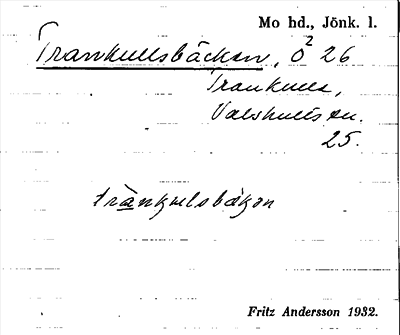 Mo hd., Jönk. l.
Trankullsbäcken, Ö² 26
Trankulla,
Valshults sn.
25.
trànkulsbäkən
Fritz Andersson 1932.